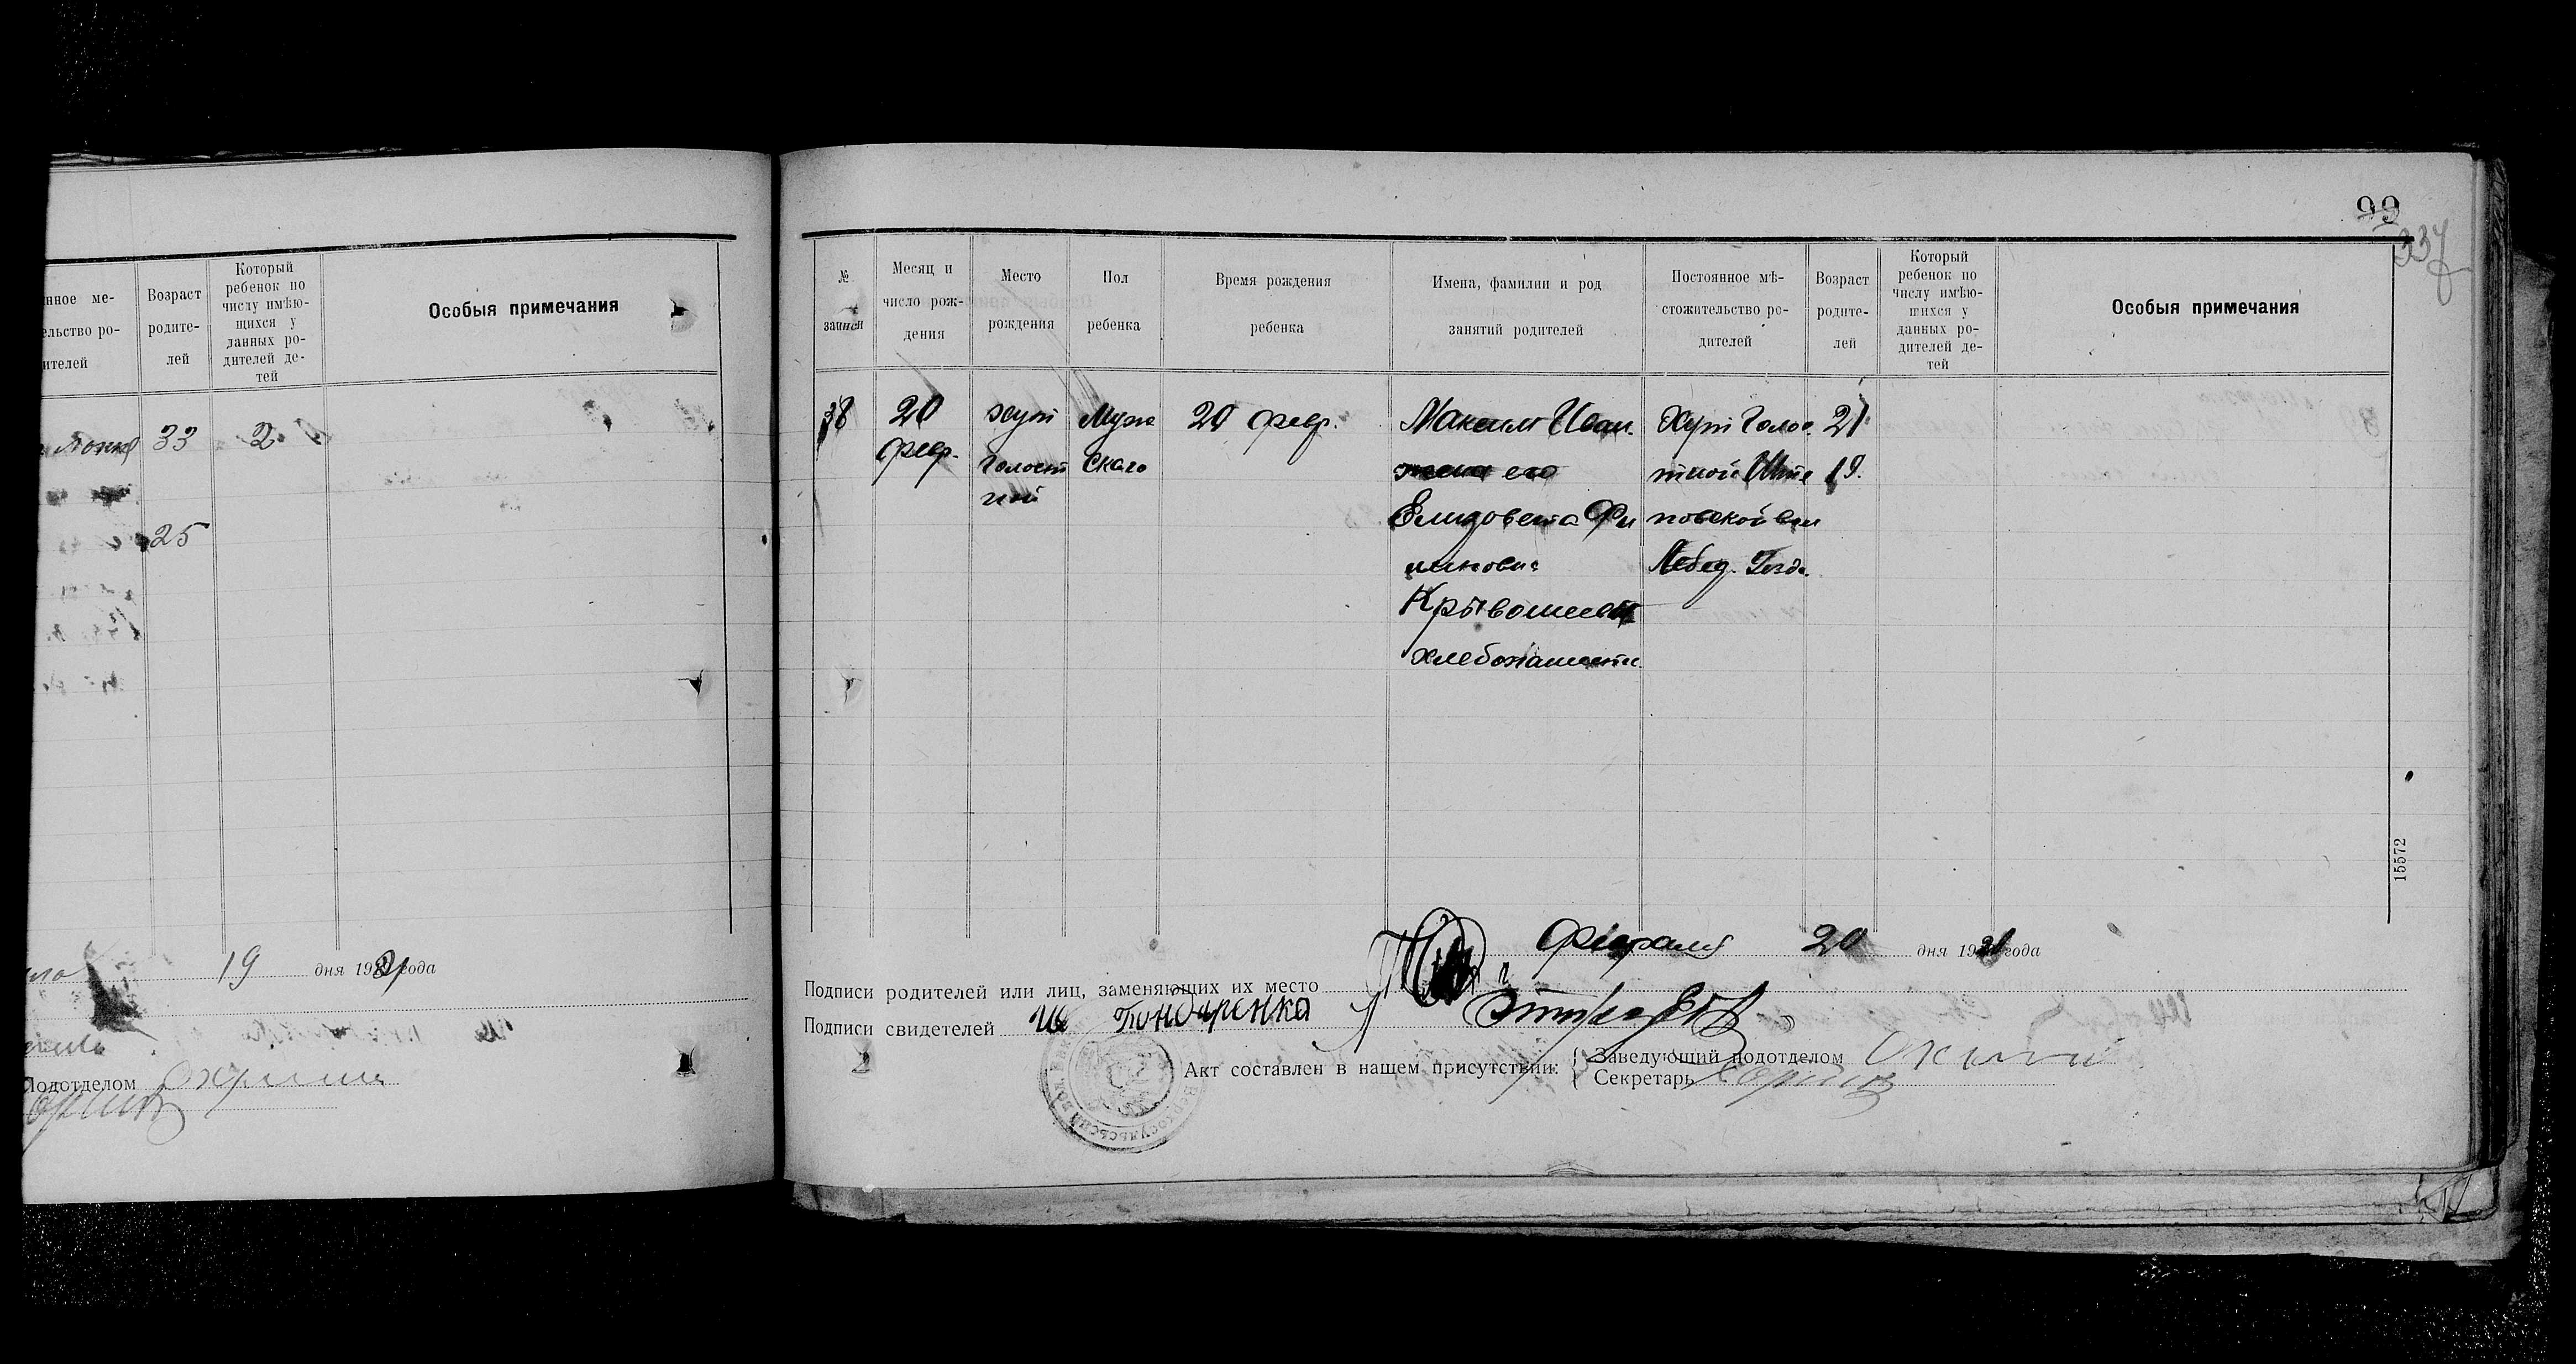 99
337
нное ме-
ельство ро-
ителей
Возраст
родите-
лей
Который
ребенок по
числу имѣю-
щихся у
данных ро-
дителей де-
тей
Особыя примечания
33
2
25
19 дня 1921 года
подотделом
№
записи
Месяц и
число рож-
дения
Место
рождения
Пол
ребенка
Время рождения
ребенка
Имена, фамилии и род
занятий родителей
Постоянное мѣ-
стожительство ро-
дителей
Возраст
родите-
лей
Который
ребенок по
числу имѣю-
щихся у
данных ро-
дителей де-
тей
Особыя примечания
38
20
февр.
хут
Голост
ной
Муж
ского
20 февр.
Максим Иван.
жена его
Елизовета Фи
Крывошеев
хлебопашест.
Хут Голос
тной Штe
повской вол
Лебед. Уезда.
21
19.
15572
февраля 20 дня 1921 года
Подписи родителей или лиц, заменяющих их место
Подписи свидетелей Ив Бондаренка
Акт составлен в нашем присутствии:
Заведующий подотделом
Секретарь